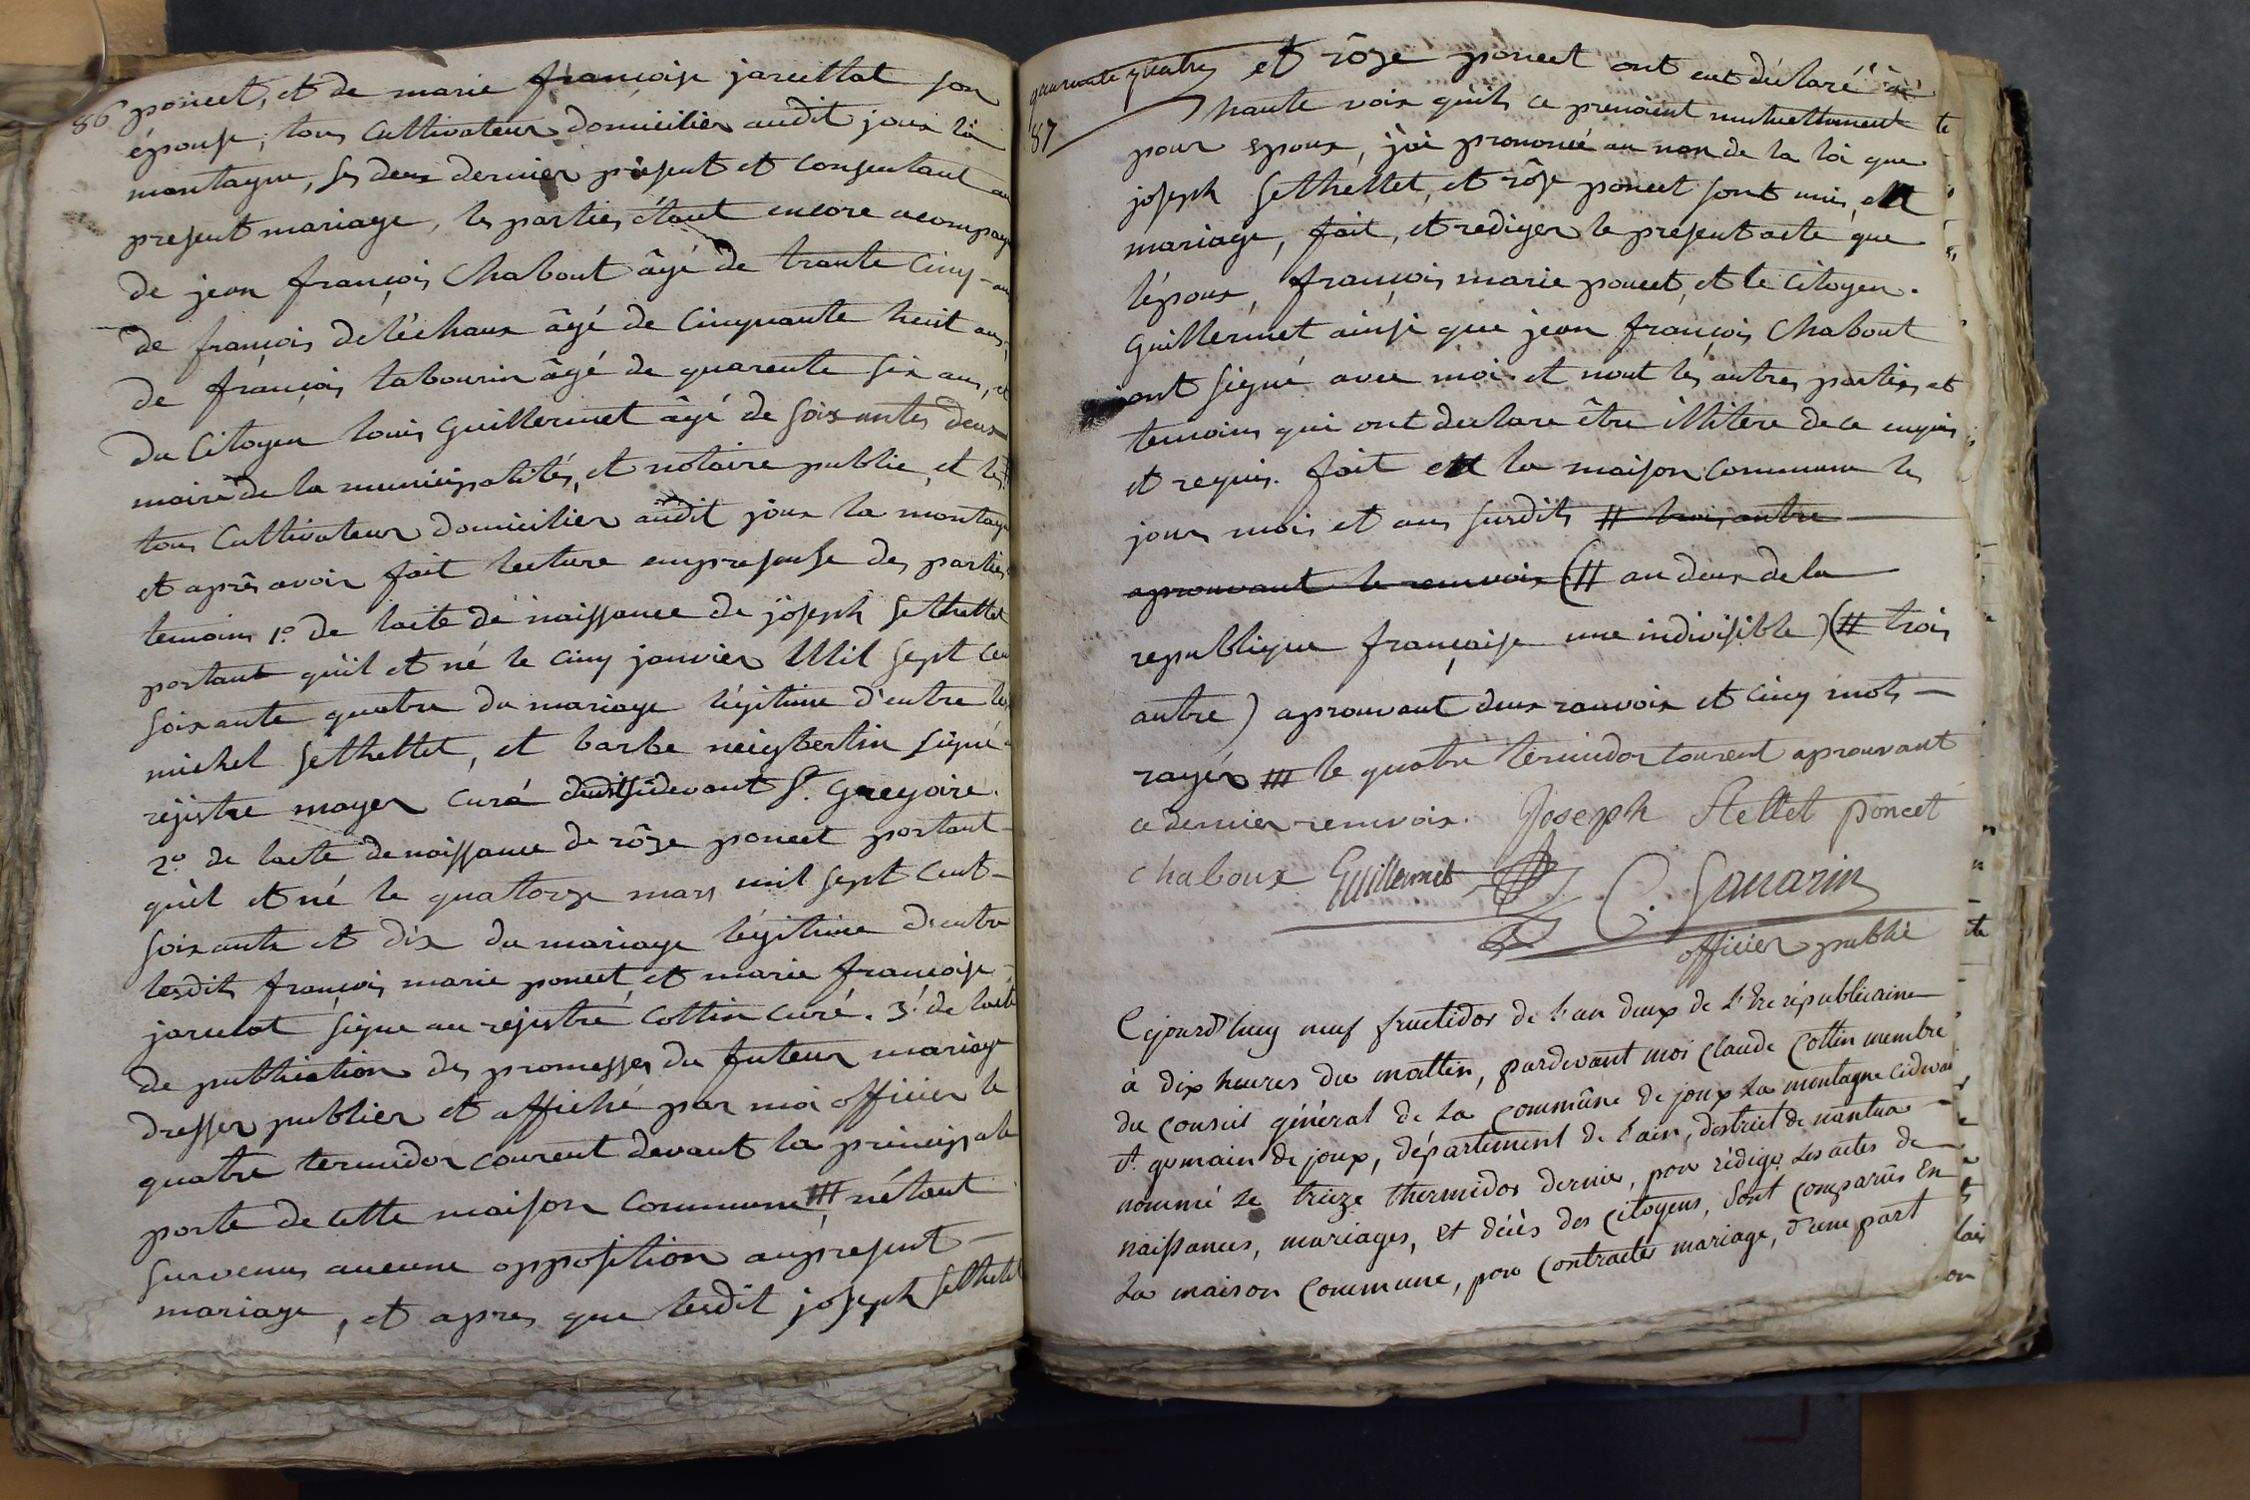 86 poncet, et de marie françoise jarcellat son
épouse, tous Cultivateur domiciliés audit joux la
montagne, ses deux dernier présent et consentant au
present mariage, les parties étant encore acompagn
de jean françois Chabout âgé de trante Cinq ans
de françois deléchaux âgé de Cinquante heuit ans,
de françois tabourin âgé de quarente six ans, et
du Citoyen louis Guillermet âgé de soixantes deux
maire de la municipalités, et notaire public, et les
tous Cultivateur domicilier audit joux la montag
et après avoir fait lecture empresense des parties
temoins 1º de lacte de naissance de joseph Sethellet
portant quil et né le cinq janvier Mil sept cen
soixante quatre du mariage légitime d'entre les
michel Sethellet, et barbe neigbertin signé
réjistre mayer curé cidevant St. Gregoire.
2º de lacte de naissance de rôze poncet portant
quil et né le quatorze mars mil sept Cent
soixante et dix du mariage légitime d'entre
lesdits françois marie poncet et marie françoise
jarcelat signe au rejistré Cottin curé. 3º de lacte
de publication des promesses du futeur mariage
dresser publier et affiché par moi officier le
quatre termidor courent devant la principale
porte de cette maison Commune # n'étant
survenus aucune opposition aupresent
mariage, et apres que lesdit joseph Sethellet
quarente quatre
87
et rôze poncet ont eut déclaré à
haute voix quils ce prenoient mutuellement
pour epoux, j'ai prononcé au non de la loi que
joseph Sethellet, et rôse poncet sont unis en
mariage, fait, et rediger le présent acte que
lépoux, françois marie poncet, et le Citoyen
Guillermet ainsi que jean françois Chabout
ont signé avec moi et nont les autres parties et
temoins qui ont declare être illitere de ce enquis
et requis. fait en la maison commune les
jours mois et ans susdits # trois autre
aprouvant le renvoix (# an deux de la
republique française une indivisible) (# trois
autre) aprouvant deux ranvoix et cinq mots
rayés # le quatre termidor courent aprouvant
ce dernier renvoix. Joseph Stellet poncet
chaboux Guillermet C. Savarin
officier public
Cejourd'huy neuf fructidor de l'an deux de l'Ere républicaine
à dix heures du mattin, pardevant moi Claude Cottin membre
du conseil général de la commune de joux la montagne cideva
St. germain de joux, département de l'ain, district de nantua
nommé le treize thermidor dernier, pour rédiger les actes de
naissances, mariages, et décès des citoyens, sont comparus En
la maison Commune, pour Contracter mariage, d'une part